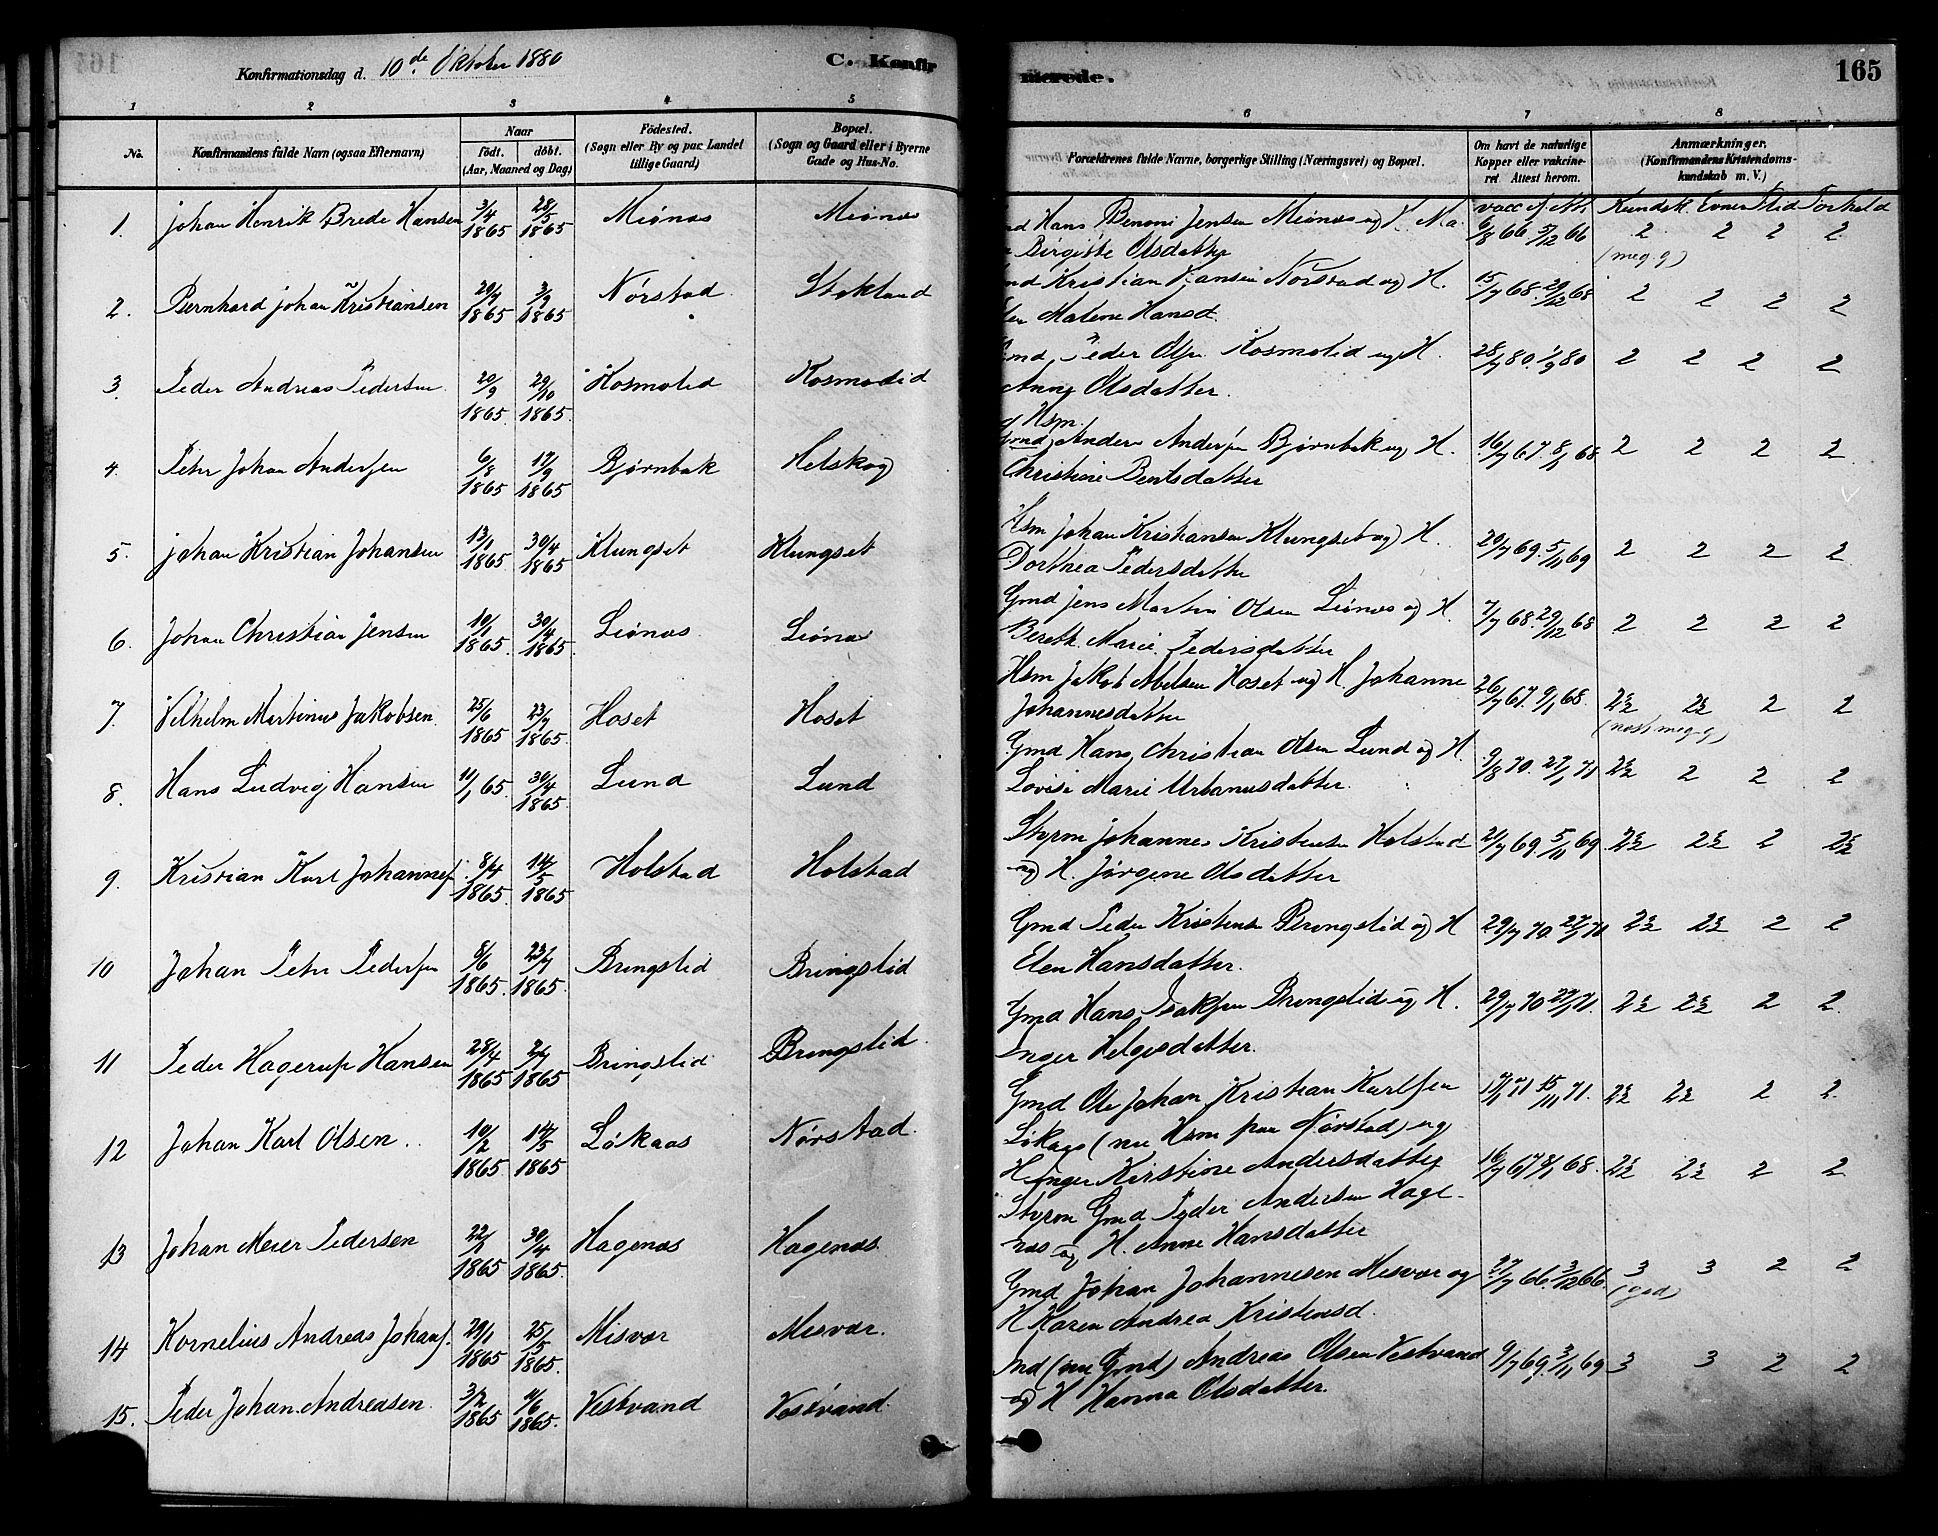 Konfirmationsdag d. 10de Oktober 1880 C. Konfir merede. 165
1 2 3 4 5 6 7 8
No. Konfirmandens fulde Navn (ogsaa Efternavn) Naar födt. döbt. (Aar, Maaned og Dag) Födested. (Sogn eller By og paa Landet tillige Gaard) Bopæl. (Sogn og Gaard eller i Byerne Gade og Hus-No. Forældrenes fulde Navne, borgerlige Stilling (Næringsvei) og Bopæl. Om havt de naturlige Kopper eller vakcineret Attest herom. Anmærkninger. (Konfirmandens Kristendomskundskab m. V.)
vacc Att Kundsk. Evner Flid Forhold
1. Johan Henrik Brede Hansen 3/4 1865 28/5 1865 Misnæs Misnæs Hans Benoni Jensen Misnæs og H. Ma 6/8 66 5/12 66 2 2 2 2
Birgitte Olsdatter (meg. g)
2. Bernhard Johan Kristiansen 29/7 1865 3/9 1865 Nørstad Stokland Kristian Hansen Nørstad og H. 15/7 68. 29/12 68 2 2 2 2
Malene Hansd.
3. Peder Andreas Pedersen 20/9 1865 29/10 1865 Kosmolid Kosmolid Gmd Peder Olsen Kosmolid og H. 28/7 80. 1/9 80 2 2 2 2
Anne Olsdatter.
4. Petr Johan Andersen 6/8 1865 17/9 1865 Bjørnbak Helskog Hsm Anders Andersen Bjørnbak og H. 16/7 67. 8/1 68 2 2 2 2
Christine Bentsdatter
5. Johan Kristian Johansen 13/1 1865 30/4 1865 Klungset Klungset Hsm Johan Kristiansen Klungset og H. 20/7 69. 5/11 69 2 2 2 2
Dorthea Pedersdatter
6. Johan Christian Jensen 10/1 1865. 30/4 1865 Lisnæs Lisnæs Gmd Jens Martin Olsen Lisnæs og H. 7/7 68. 29/12 68 2 2 2 2
Bereth Marie Pedersdatter
7. Vilhelm Martinus Jakobsen 25/6 1865 23/7 1865. Hoset Hoset Hsm Jakob Abelsen Hoset og H. Johanne 26/7 67. 9/1 68. 2½ 2½ 2 2
Johannesdatter (næst meg. g)
8. Hans Ludvig Hansen 11/1 65 30/4 1865 Lund Lund Gmd Hans Christian Olsen Lund og H. 9/8 70. 27/1 71 2½ 2 2 2
Lovise Marie Urbanusdatter.
9. Kristian Karl Johannes. 8/4 1865. 14/5 1865 Holstad Holstad Styrm Johannes Kristensen Holstad 21/7 69. 5/11 69 2½ 2½ 2 2½
og H. Jørgene Olsdatter
10 Johan Petr Pedersen 8/6 1865. 23/7 1865. Bringslid Bringslid Gmd Peder Kristensen Bringslid og H 29/7 70. 27/1 71 2½ 2½ 2 2
Elen Hansdatter.
11 Peder Hagerup Hansen 28/4 1865 2/7 1865 Bringslid Bringslid. Gmd Hans Isaksen Bringslid og H. 29/7 70 27/1 71. 2½ 2½ 2 2.
Inger Helgesdatter.
12 Johan Karl Olsen. 10/2 1865 14/5 1865 Løkaas Nørstad Gmd Ole Johan Kristian Karlsen 15/11 71. 2½ 2½ 2 2.
Løkaas (nu Hsm paa Nørstad) og
H. Inger Kirstine Andersdatter
13 Johan Meier Pedersen 22/1 1865 30/4 1865. Hagenæs Hagenæs. Styrm Gmd Peder Andersen Hage- 16/7 67 8/1 68. 2½ 2½ 2 2
næs og H. Anne Hansdatter
14 Kornelius Andreas Johans. 29/1 1865 25/5 1865. Misvær Misvær. Gmd Johan Johannesen Misvær og 27/7 66. 3/12 66. 3 3 2 2
H Karen Andrea Kristensd. (god)
15. Peder Johan Andreasen. 3/2 1865 4/6 1865. Vestvand Vestvand. (nu Gmd) Andreas Olsen Vestvand 9/7 69. 3/11 69 3 3 2 2
og H Hanna Olsdatter.